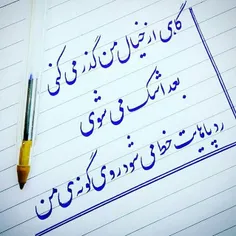 گاهی از خیال من گذر می کنی
بعد اشک می شوی
رد پاهایت خط می شود روی گونه ی من